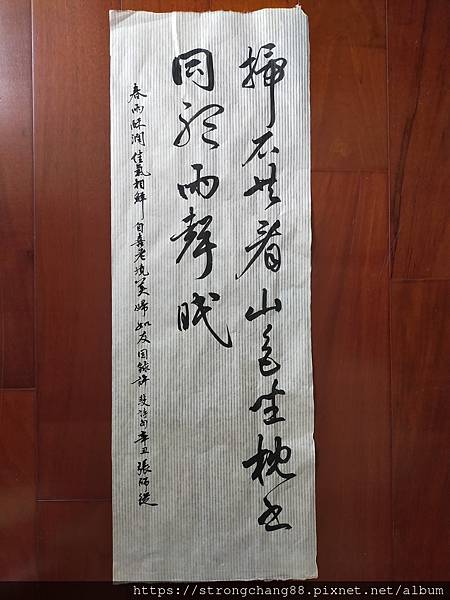 掃石共看山色坐枕書
同聽雨聲眠
春雨酥潤佳氣相鮮自喜老境美婦如友因錄許詩句辛丑張師從
https://strongchang88.pixnet.net/album